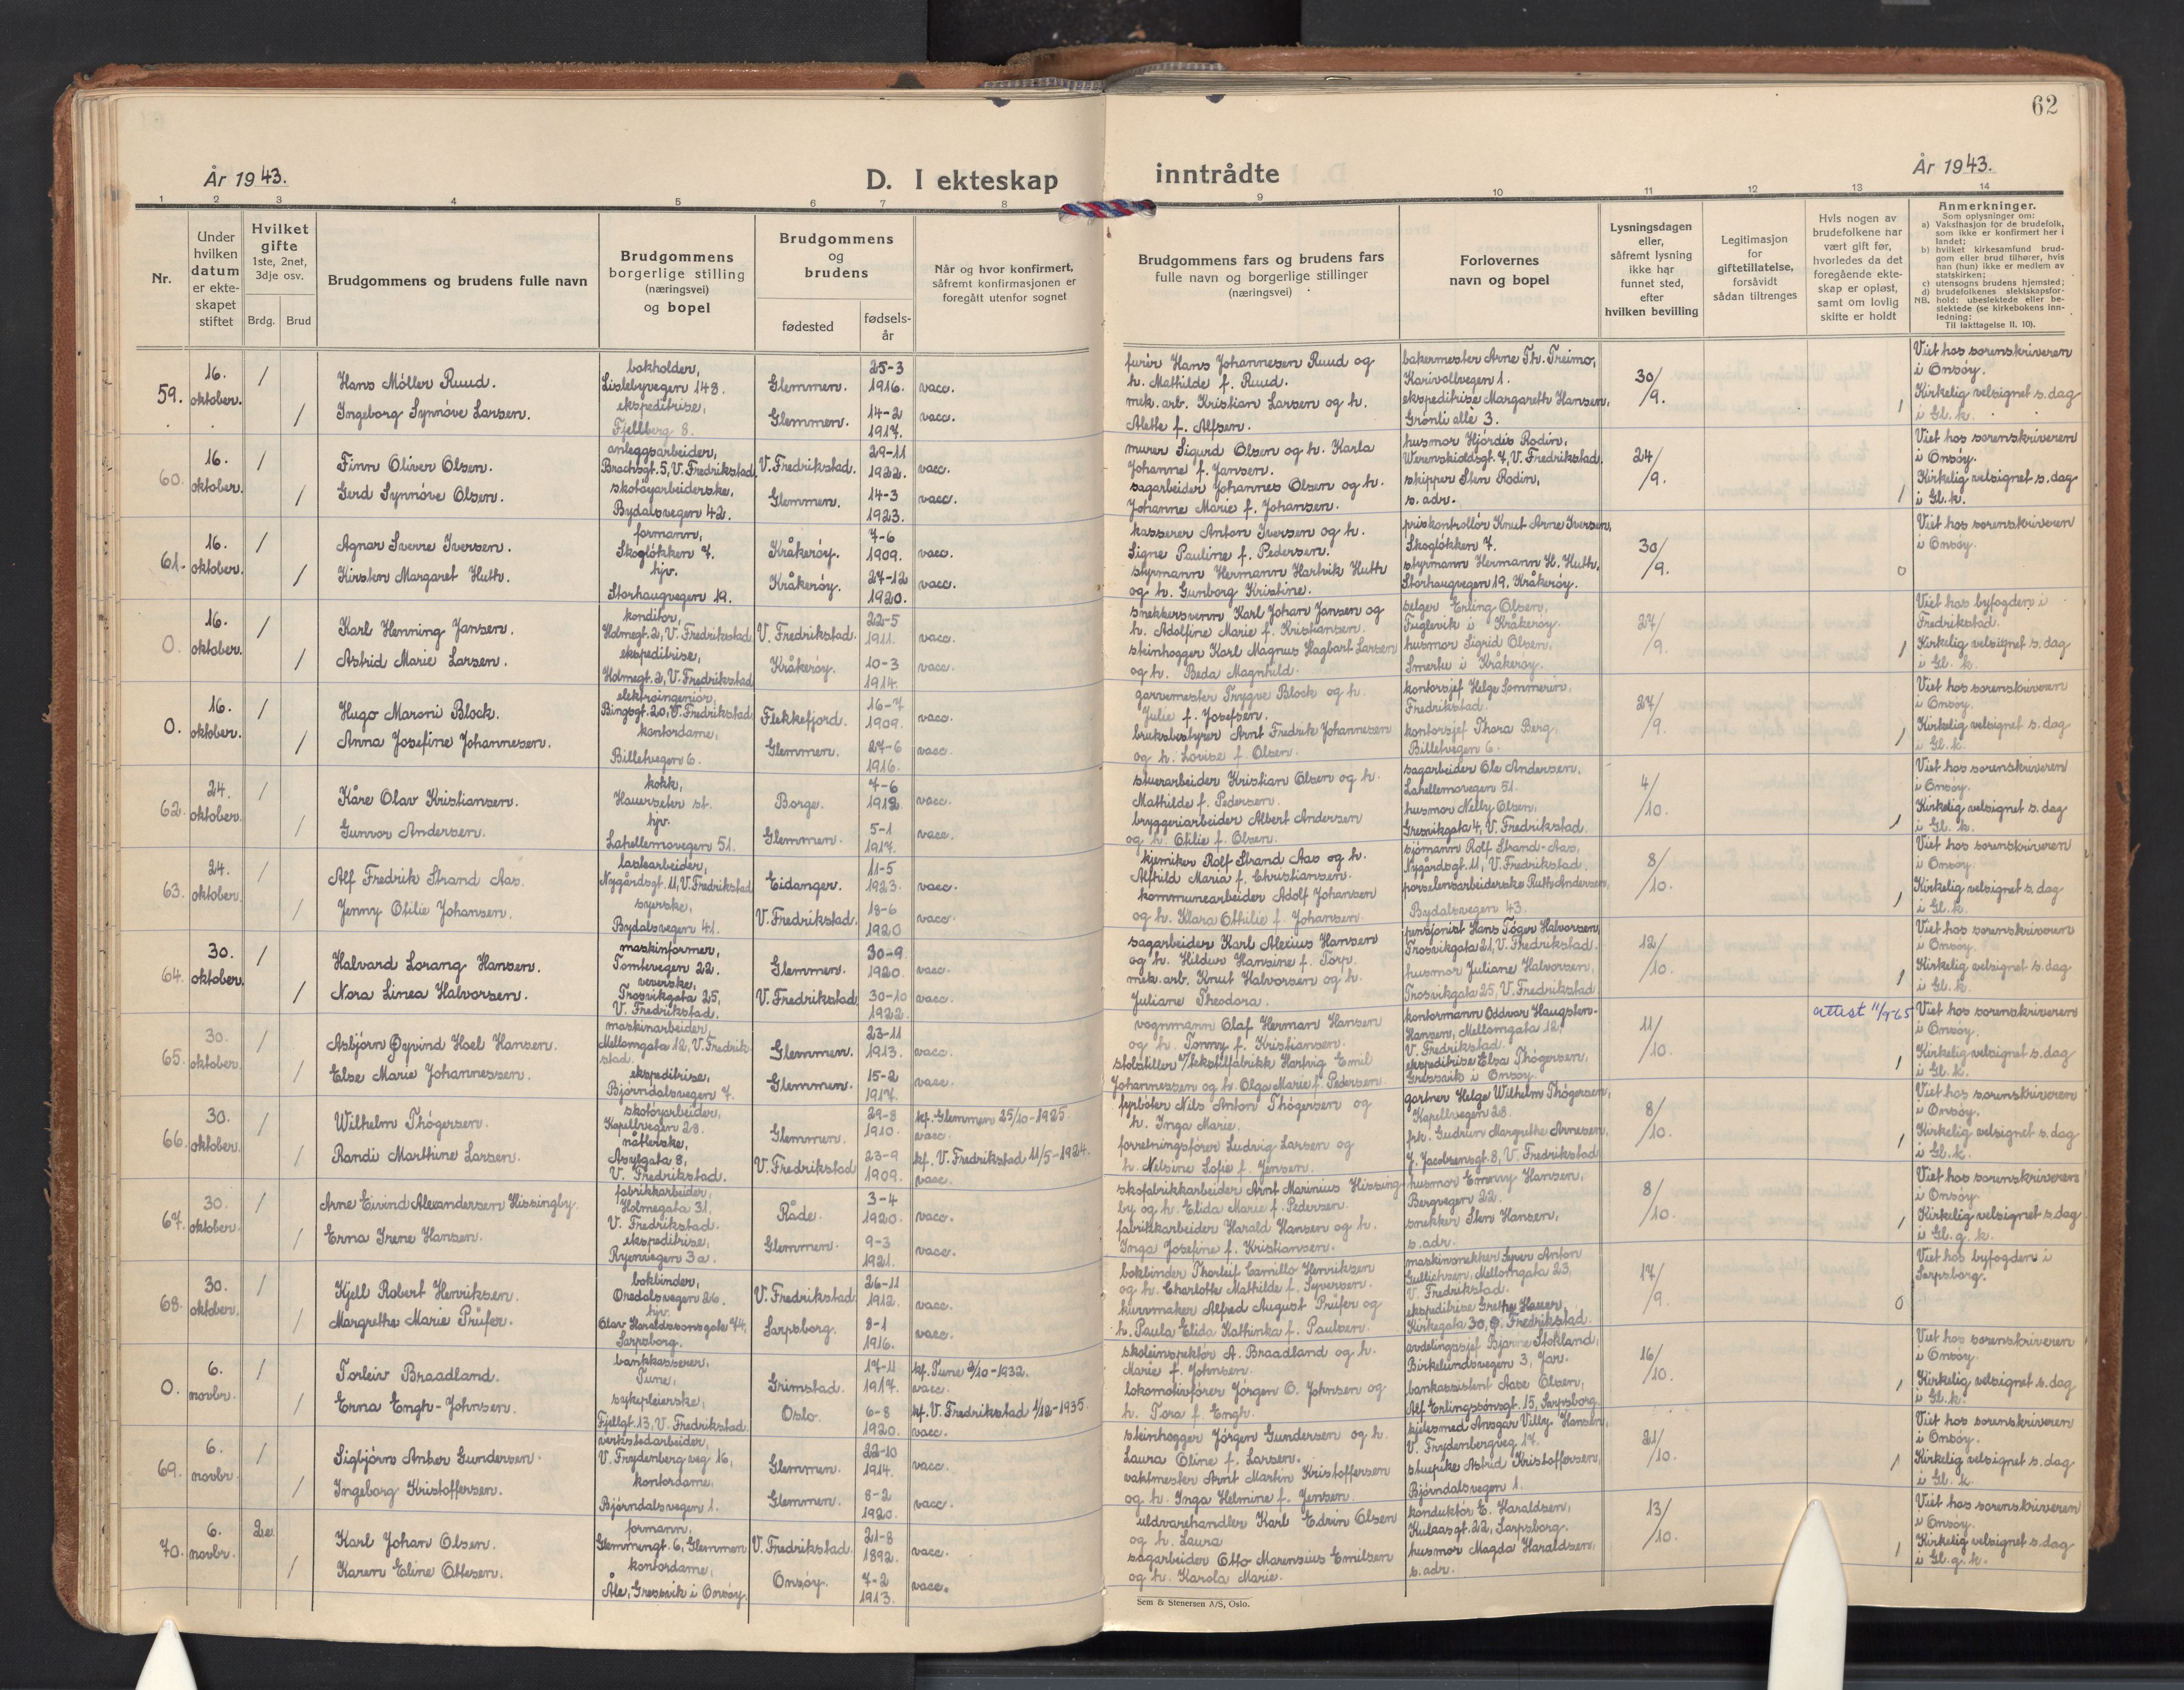 62
År 1943.
D. I ekteskap inntrådte
År 1943.
1 2 3 4 5 6 7 8 9 10 11 12 13 14
Nr.
Under hvilken datum er ekteskapet stiftet
Hvilket gifte 1ste, 2net, 3dje osv.
Brdg. Brud
Brudgommens og brudens fulle navn
Brudgommens borgerlige stilling (næringsvei) og bopel
Brudgommens og brudens
fødested
fødsels-år
Når og hvor konfirmert, såfremt konfirmasjonen er foregått utenfor sognet
Brudgommens fars og brudens fars fulle navn og borgerlige stillinger (næringsvei)
Forlovernes navn og bopel
Lysningsdagen eller, såfremt lysning ikke har funnet sted, efter hvilken bevilling
Legitimasjon for giftetillatelse, forsåvidt sådan tiltrenges
Hvis nogen av brudefolkene har vært gift før, hvorledes da det foregående ekteskap er opløst, samt om lovlig skifte er holdt
Anmerkninger.
Som oplysninger om:
a) Vaksihasjon for de brudefolk, som ikke er konfirmert her i landet;
b) hvilket kirkesamfund brudgom eller brud tilhører, hvis han (hun) ikke er medlem av statskirken;
c) utensogns brudens hjemsted;
d) brudefolkenes slektskapsforhold: ubeslektede eller beslektede (se kirkebokens innledning:
NB. Til iakttagelse II. 10).
59. 16. oktober. 1 Hans Möller Ruud. bokholder, Lislebyvegen 143. Glemmen. 25-3 1916. vacc.
1 Ingeborg Synnöve Larsen. ekspeditrise, Fjellberg 8. Glemmen. 14-2 1917. vacc.
furér Hans Johannesen Ruud og h. Mathilde f. Ruud.
mek. arb. Kristian Larsen og h. Alethe f. Alfsen.
bakermester Arne Th. Treimo, Karivollvegen 1.
ekspeditrise Margareth Hansen, Grönli allé 3.
30/9. 1
Viet hos sorenskriveren i Onsöy.
Kirkelig velsignet s. dag i Gl. k.
60. 16. oktober. 1 Finn Oliver Olsen. anleggsarbeider, Brochsgt. 5, V. Fredrikstad. V. Fredrikstad. 29-11 1922. vacc.
1 Gerd Synnöve Olsen. skotöyarbeiderske, Bydalsvegen 42. Glemmen. 14-3 1923. vacc.
murer Sigurd Olsen og h. Karla Johanne f. Jansen.
sagarbeider Johannes Olsen og h. Johanne Marie f. Johansen.
husmor Hjördis Rodin, Werenskioldsgt. 7, V. Fredrikstad.
skipper Sten Rodin, s. adr.
24/9. 1
Viet hos sorenskriveren i Onsöy.
Kirkelig velsignet s. dag i Gl. k.
61. 16. oktober. 1 Agnar Sverre Iversen. formann, Skoglökken 7. Kråkeröy. 7-6 1909. vacc.
1 Kirsten Margaret Huth. hjv. Storhaugvegen 19. Kråkeröy. 27-12 1920. vacc.
kasserer Anton Iversen og h. Signe Pauline f. Pedersen.
styrmann Hermann Hartvik Huth og h. Gunborg Kristine.
priskontrollör Knut Arne Iversen, Skoglökken 7.
styrmann Hermann H. Huth, Storhaugvegen 19, Kråkeröy.
30/9. 0
Viet hos sorenskriveren i Onsöy.
0. 16. oktober. 1 Karl Henning Jansen. konditor, Holmegt. 2, V. Fredrikstad V. Fredrikstad. 22-5 1911. vacc.
1 Astrid Marie Larsen. ekspeditrise, Holmegt. 2, V. Fredrikstad Kråkeröy. 10-3 1914. vacc.
snekkersvenn Karl Johan Jansen og h. Adolfine Marie f. Kristiansen.
steinhogger Karl Magnus Hagbart Larsen og h. Beda Magnhild.
selger Erling Olsen, Fuglevik i Kråkeröy.
husmor Sigrid Olsen, Smertu i Kråkeröy.
27/9. 1
Viet hos byfogden i Fredrikstad.
Kirkelig velsignet s. dag i Gl. k.
0. 16. oktober. 1 Hugo Maroni Block. elektroingeniör, Bingsgt. 20, V. Fredrikstad Flekkefjord. 16-7 1909. vacc.
1 Anna Josefine Johannesen. kontordame, Billetvegen 6. Glemmen. 27-6 1916. vacc.
garvemester Trygve Block og h. Julie f. Josefsen.
bruksbestyrer Arnt Fredrik Johannesen og h. Lovise f. Olsen.
kontorsjef Helge Sommerin, Fredrikstad.
kontorsjef Thora Berg, Billetvegen 6.
27/9. 1
Viet hos sorenskriveren i Onsöy.
Kirkelig velsignet s. dag i Gl. k.
62. 24. oktober. 1 Kåre Olav Kristiansen. kokk, Hauerseter st. Borge. 7-6 1912. vacc.
1 Gunvor Andersen. hjv. Lahellemovegen 51. Glemmen. 5-1 1917. vacc.
stuerarbeider Kristian Olsen og h. Mathilde f. Pedersen.
bryggeriarbeider Albert Andersen og h. Otilie f. Olsen.
sagarbeider Ole Andersen, Lahellemovegen 51.
husmor Nelly Olsen, Gresvikgata 4, V. Fredrikstad.
4/10. 1
Viet hos sorenskriveren i Onsöy.
Kirkelig velsignet s. dag i Gl. k.
63. 24. oktober. 1 Alf Fredrik Strand Aas. lastearbeider, Nygårdsgt. 11, V. Fredrikstad Eidanger. 11-5 1923. vacc.
1 Jenny Otilie Johansen. syerske, Bydalsvegen 41. V. Fredrikstad. 18-6 1920 vacc.
kjemiker Rolf Strand Aas og h. Alfhild Maria f. Christiansen.
kommunearbeider Adolf Johansen og h. Klara Othilie f. Johansen.
sjömann Rolf Strand-Aas, Nygårdsgt. 11, V. Fredrikstad.
porselensarbeiderske Ruth Andersen, Bydalsvegen 43.
8/10. 1
Viet hos sorenskriveren i Onsöy.
Kirkelig velsignet s. dag i Gl. k.
64. 30. oktober. 1 Halvard Lorang Hansen. maskinformer, Tomtevegen 22. Glemmen. 30-9 1920. vacc.
1 Nora Linea Halvorsen. veverske, Trosvikgata 25, V. Fredrikstad. V. Fredrikstad 30-10 1922. vacc.
sagarbeider Karl Alexius Hansen og h. Hildur Hansine f. Torp.
mek. arb. Knut Halvorsen og h. Juliane Theodora.
pensjonist Hans Töger Halvorsen, Trosvikgata 21, V. Fredrikstad.
husmor Juliane Halvorsen, Trosvikgata 25, V. Fredrikstad
12/10. 1
Viet hos sorenskriveren i Onsöy.
Kirkelig velsignet s. dag i Gl. k.
65. 30. oktober. 1 Asbjörn Øyvind Hoel Hansen. maskinarbeider, Mellomgata 12, V. Fredrikstad. Glemmen. 23-11 1913. vacc.
1 Else Marie Johannessen. ekspeditrise, Björndalsvegen 7. Glemmen. 15-2 1917. vacc.
vognmann Olaf Herman Hansen og h. Tonny f. Kristiansen.
stolstiller v/tekstilfabrikk Hartvig Emil Johannessen og h. Olga Marie f. Pedersen.
kontormann Oddvar Haugsten-Hansen, Mellomgata 12, V. Fredrikstad.
ekspeditrise Elsa Thögersen, Gressvik i Onsöy.
11/10. 1
attest 11/9-65
Viet hos sorenskriveren i Onsöy.
Kirkelig velsignet s. dag i Gl. k.
66. 30. oktober. 1 Wilhelm Thögersen. skotöyarbeider, Kapellvegen 28. Glemmen. 29-8 1910. kf. Glemmen 25/10-1925. vacc.
1 Randi Marthine Larsen. nåtlerske, Asylgata 8, V. Fredrikstad. V. Fredrikstad 23-9 1909. kf. V. Fredrikstad 11/5-1924. vacc.
fyrböter Nils Anton Thögersen og h. Inga Marie.
forretningsförer Ludvig Larsen og h. Nelsine Sofie f. Jensen.
gartner Helge Wilhelm Thögersen, Kapellvegen 28.
frk. Gudrun Margrethe Arnesen, J. Jacobsensgt. 8, V. Fredrikstad
8/10. 1
Viet hos sorenskriveren i Onsöy.
Kirkelig velsignet s. dag i Gl. k.
67. 30. oktober. 1 Arne Eivind Alexandersen Hissingby. fabrikkarbeider, Holmegata 31, V. Fredrikstad. Råde. 3-4 1920. vacc.
1 Erna Irene Hansen. ekspeditrise, Ryenvegen 3a. Glemmen. 9-3 1921. vacc.
skofabrikkarbeider Arnt Marinius Hissingby og h. Elida Marie f. Pedersen.
fabrikkarbeider Harald Hansen og h. Inga Josefine f. Kristiansen.
husmor Emmy Hansen, Bergvegen 22.
snekker Sten Hansen, s. adr.
8/10. 1
Viet hos sorenskriveren i Onsöy.
Kirkelig velsignet s. dag i Gl. g. k.
68. 30. oktober. 1 Kjell Robert Henriksen. bokbinder, Oredalsvegen 26. V. Fredrikstad 26-11 1912. vacc.
1 Margrethe Marie Prüfer. hjv. Olav Haraldssonsgate 74, Sarpsborg. Sarpsborg. 8-1 1916. vacc.
bokbinder Thorleif Camillo Henriksen og h. Charlotte Mathilde f. Syversen.
kurvmaker Alfred August Prüfer og h. Paula Elida Kathinka f. Paulsen.
maskinsnekker Syver Anton Gullichsen, Mellomgata 23, V. Fredrikstad.
ekspeditrise Grethe Hauer, Kirkegata 30, Fredrikstad.
17/9. 0
Viet hos byfogden i Sarpsborg.
0. 6. novbr. 1 Torleiv Braadland. bankkasserer, Tune, Grimstad. 17-11 1917. kf. Tune 2/10-1932. vacc.
1 Erna Engh-Johnsen. sykepleierske, Fjellgt. 13, V. Fredrikstad Oslo. 6-8 1920. kf. V. Fredrikstad 1/12-1935. vacc.
skoleinspektör A. Braadland og h. Marie f. Johnsen.
lokomotivförer Jörgen O. Johnsen og h. Tora f. Engh.
avdelingssjef Bjarne Stokland, Birkelundsvegen 3, Jar.
bankassistent Aase Olsen, Alf Erlingssönsgt. 15, Sarpsborg.
16/10. 1
Viet hos sorenskriveren i Onsöy.
Kirkelig velsignet s. dag i Gl. k.
69. 6. novbr. 1 Sigbjörn Anker Gundersen. verkstedarbeider, V. Frydenberg veg 16, Glemmen. 22-10 1914. vacc.
1 Ingeborg Kristoffersen. kontordame, Björndalsvegen 1. Glemmen. 8-2 1920. vacc.
steinhogger Jörgen Gundersen og h. Laura Oline f. Larsen.
vaktmester Arnt Martin Kristoffersen og h. Inga Helmine f. Jensen.
kjelesmed Ansgar Villy Hansen, V. Frydenbergveg 17.
stuepike Astrid Kristoffersen, Björndalsvegen 1.
21/10. 1
Viet hos sorenskriveren i Onsöy.
Kirkelig velsignet s. dag i Gl. k.
70. 6. novbr. 2e. Karl Johan Olsen. formann, Glemmengt. 6, Glemmen V. Fredrikstad. 21-8 1892. vacc.
1 Karen Eline Ottesen. kontordame, Åle, Gressvik i Onsöy. Onsöy. 7-2 1913. vacc.
uldvarehandler Karl Edvin Olsen og h. Laura
sagarbeider Otto Marensius Emilsen og h. Karola Marie.
konduktör E. Haraldsen, Kulaasgt. 22, Sarpsborg.
husmor Magda Haraldsen, s. adr.
13/10. 1
Viet hos sorenskriveren i Onsöy.
Kirkelig velsignet s. dag i Gl. g. k.
Sem & Stenersen A/S, Oslo.